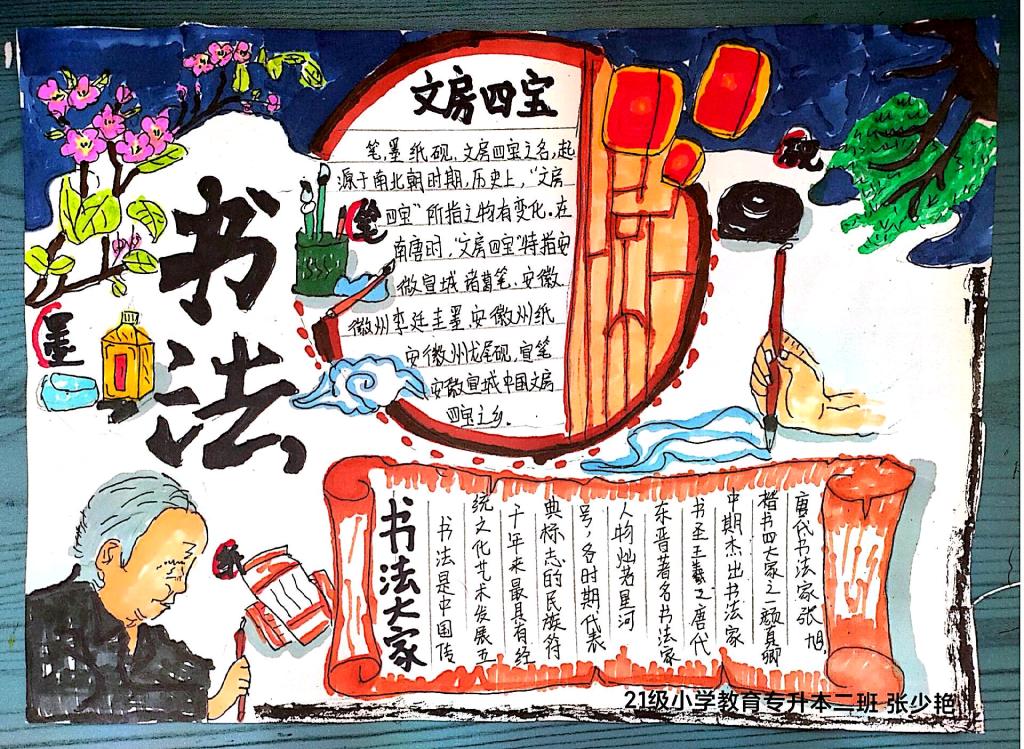 书法
文房四宝
笔,墨纸砚,文房四宝之名,起
源于南北朝时期,历史上,“文房
四宝”所指之物有变化.在
南唐时,“文房四宝”特指安
徽宣城诸葛笔.安徽
徽州李廷圭墨.安徽州纸
安徽州龙尾砚,宣笔
安徽宣城中国文房
四宝之乡.
笔
砚
墨
纸
书法大家
书法是中国传
统之化艺术发展五
千年来最具有经
典标志的民族符
号,各时期代表
人物灿若星河
东晋著名书法家
书圣王羲之唐代
中期杰出书法家
楷书四大家之一颜真卿
唐代书法家张旭
21级小学教育专升本二班 张少艳